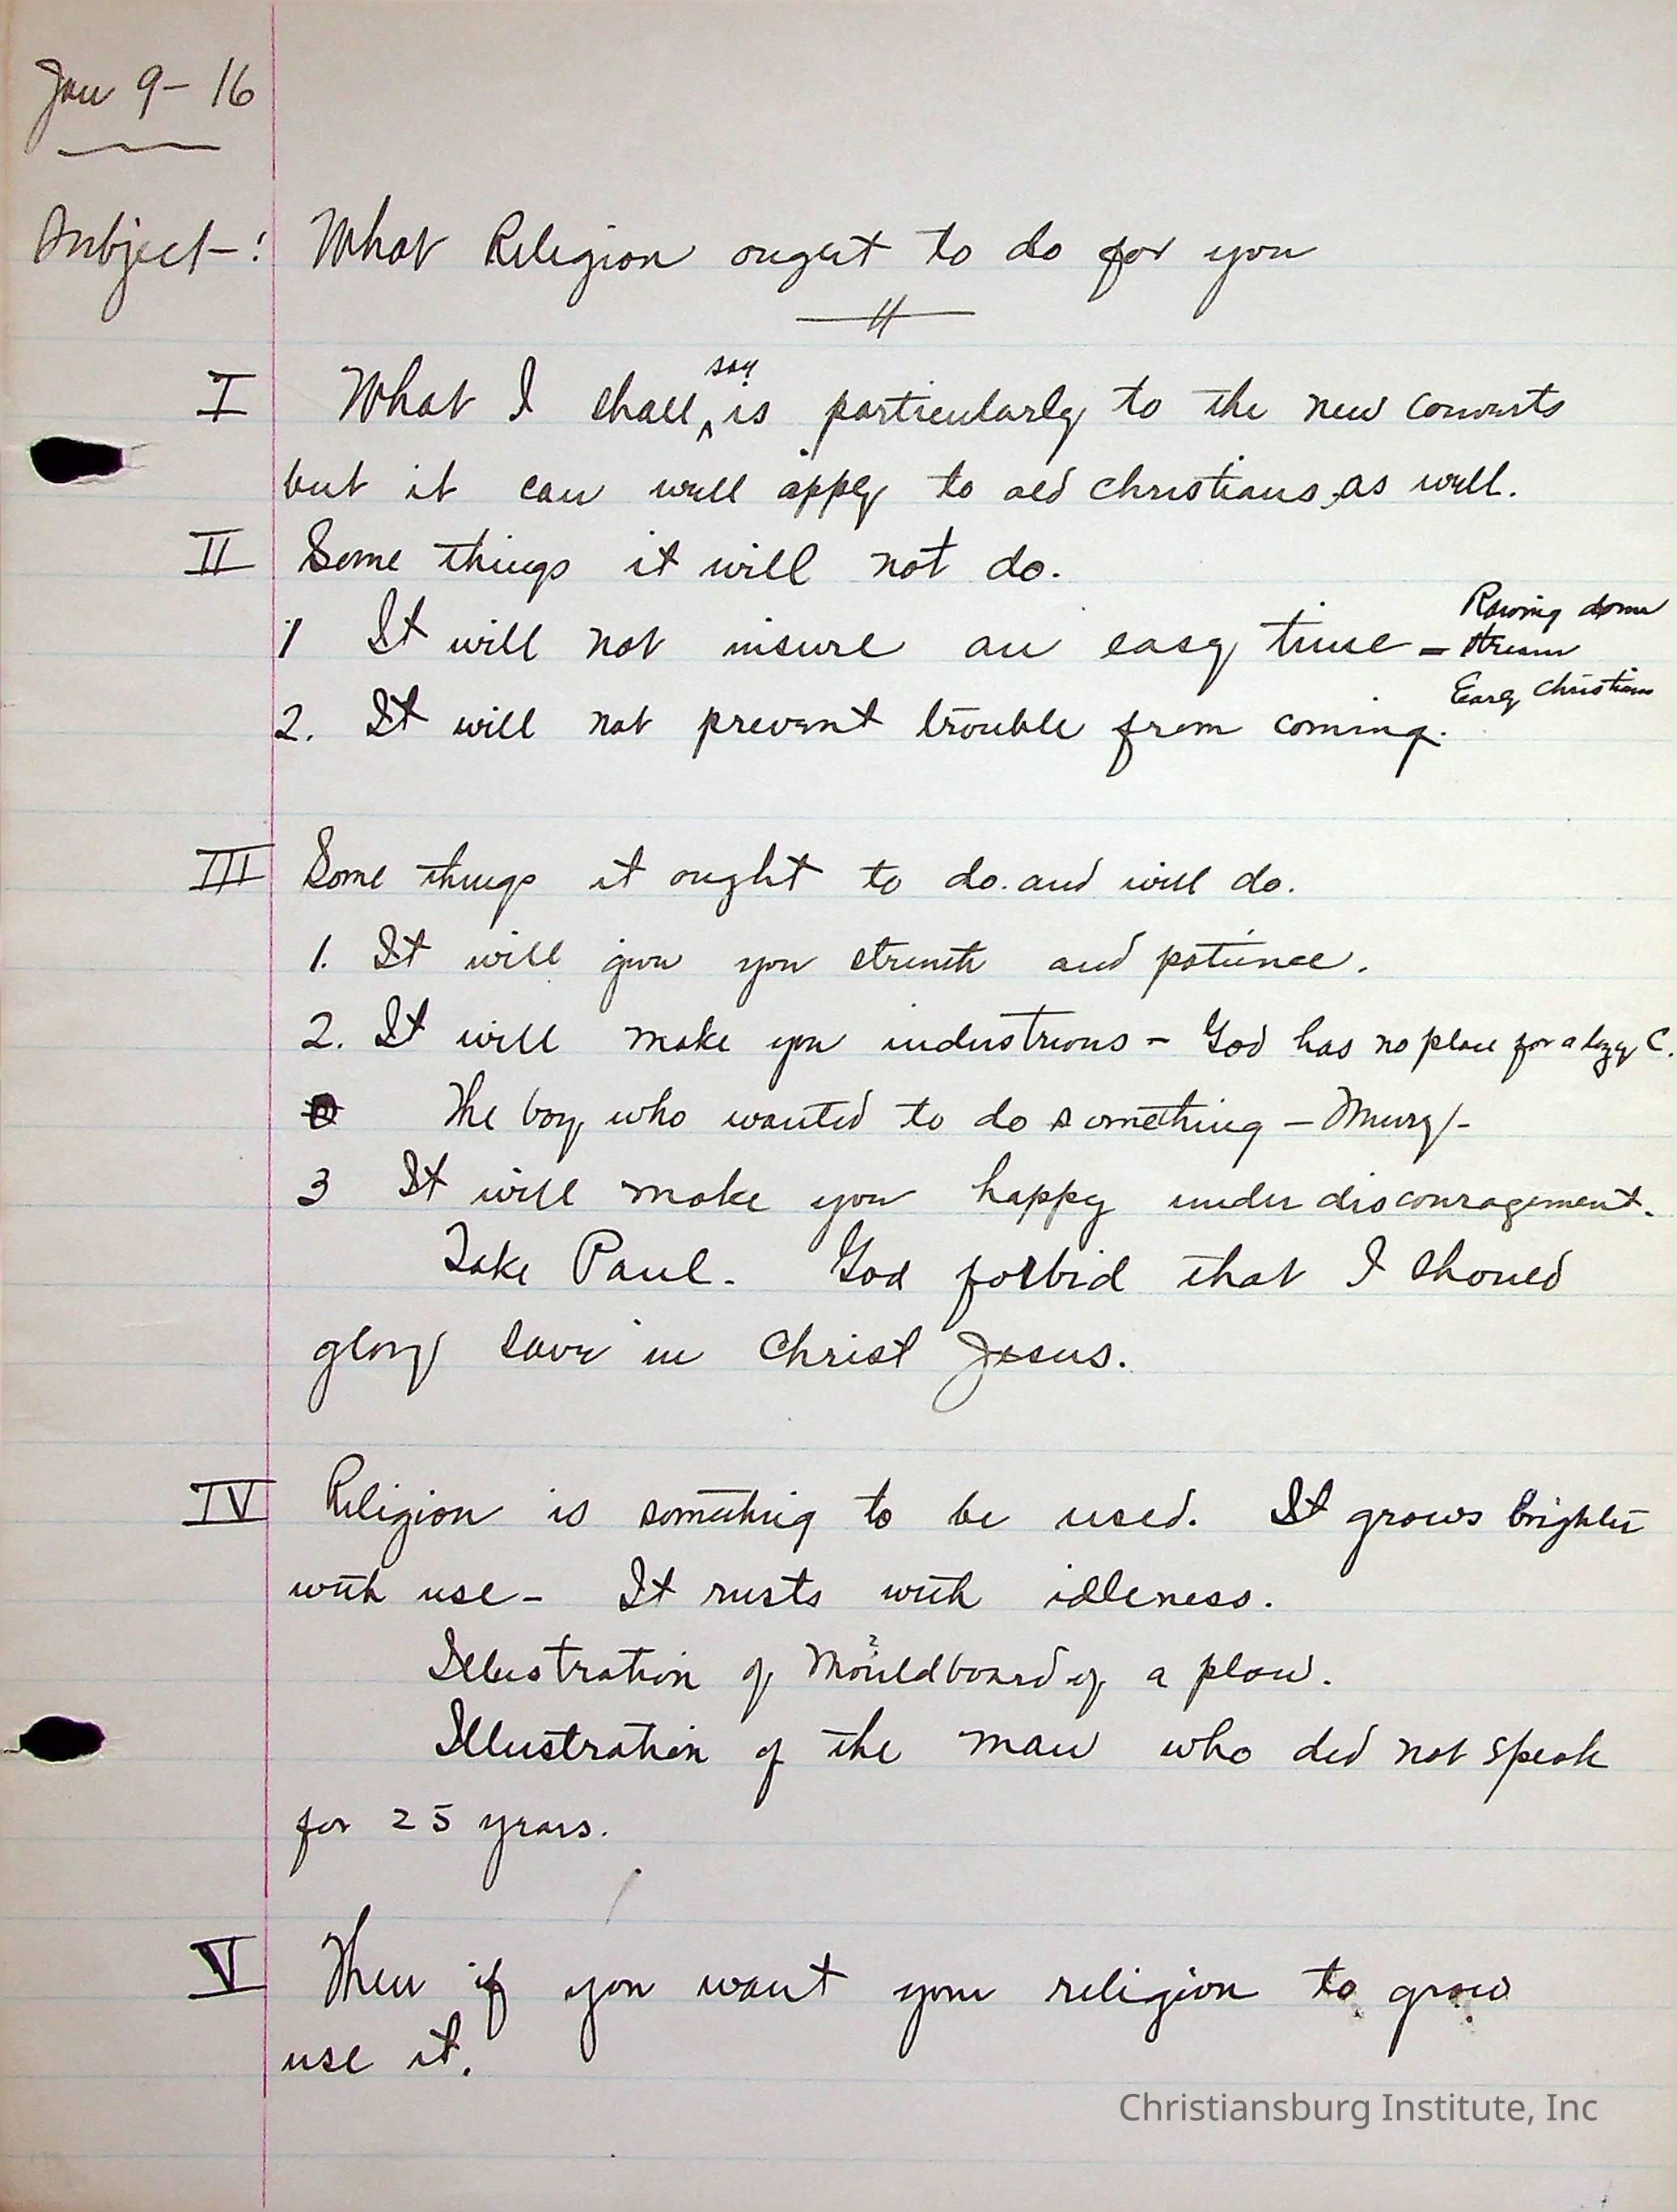 Jan 9 - 16
Subject - : What Religion ought to do for you
I What I shall say is particularly to the new converts
but it can well apply to old christians, as well.
II Some things it will not do.
1 It will not insure an easy time = Rowing down
stream
Early Christians
2. It will not prevent trouble from coming.
III Some things it ought to do. and will do.
1. It will give you strenth and patience.
2. It will make you industrious - God has no place for a lazy C.
The boy who wanted to do something -
3 It will make you happy under discouragement.
Take Paul. God forbid that I should
glory save in Christ Jesus.
IV Religion is something to be used. It grows brighter
with use - It rusts with idleness.
Illustration of Mouldboard of a plow.
Illustration of the man who did not speak
for 25 years.
V Then if you want your religion to grow
use it.
Christiansburg Institute, Inc